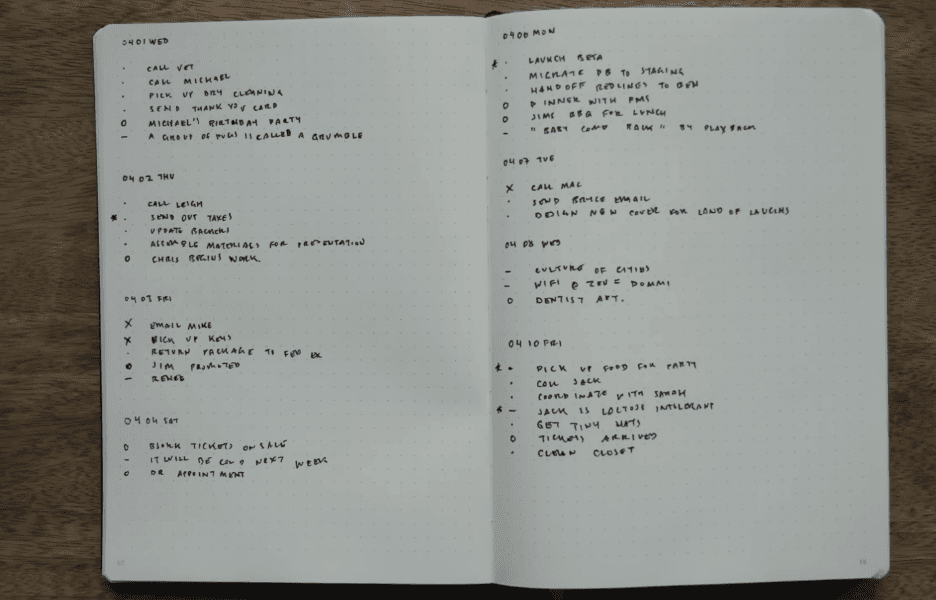 04 01 WED
· CALL VET
· CALL MICHAEL
· PICK UP DRY CLEANING
· SEND THANK YOU CARD
O MICHAEL'S BIRTHDAY PARTY
– A GROUP OF PUGS IS CALLED A GRUMBLE
04 02 THU
· CALL LEIGH
* · SEND OUT TAXES
· UPDATE BACKERS
· ASSEMBLE MATERIALS FOR PRESENTATION
O CHRIS BEGINS WORK
04 03 FRI
X EMAIL MIKE
X PICK UP KEYS
· RETURN PACKAGE TO FED EX
O JIM PROMOTED
– RENEE
04 04 SAT
O BJORK TICKETS ON SALE
– IT WILL BE COLD NEXT WEEK
O DR APPOINTMENT
04 06 MON
* · LAUNCH BETA
· MIGRATE DB TO STAGING
· HAND OFF REDLINES TO BEN
O DINNER WITH PMS
O JIMS BBQ FOR LUNCH
– "BABY COME BACK" BY PLAYBACK
04 07 TUE
X CALL MAC
· SEND BRYCE EMAIL
· DESIGN NEW COVER FOR LAND OF LAUGHS
04 08 WED
– CULTURE OF CITIES
– WIFI @
O DENTIST APT.
04 10 FRI
* · PICK UP FOOD FOR PARTY
· CALL JACK
· COORDINATE WITH SARAH
* – JACK IS LACTOSE INTOLERANT
· GET TINY HATS
O TICKETS ARRIVED
· CLEAN CLOSET